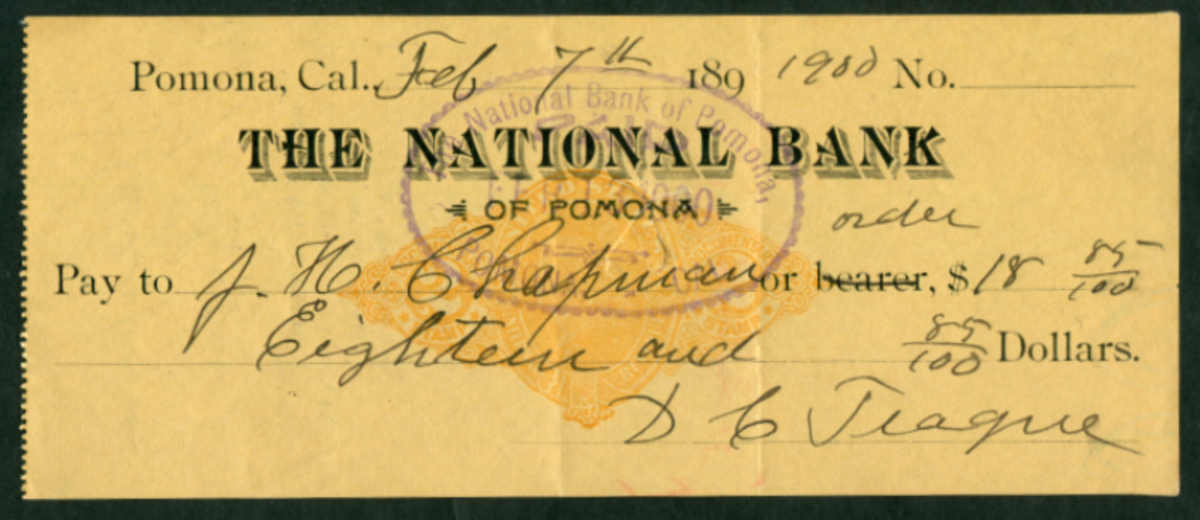 Pomona, Cal., Feb 7th 189 1900 No.
The National Bank of Pomona,
PAID
1900
THE NATIONAL BANK
OF POMONA
order
Pay to J. H. Chapman or bearer, $18 85/100
Eighteen and 85/100 Dollars.
D C Teague